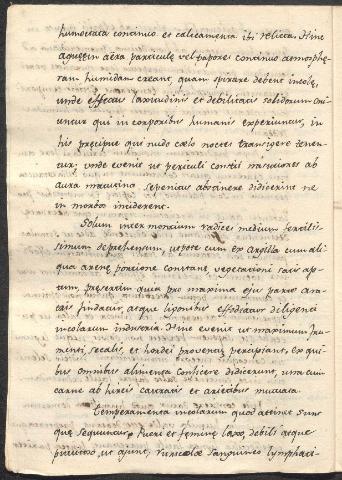 humectata continuo et calicamenta ibi relicta. Hinc
aqueæ in aëra particulę vel vapores continuo atmosphę-
ram humidam creant, quam spirare debent incolę,
unde effectus laxitudinis et debilitatis solidorum oriuntur
qui in corporibus humanis experiuntur, in
his pręcipue qui nudo cælo noctes transigere tenentur;
unde evenit ut periculi constii matutiores ab
aura matutina se penitus abstinere didicerint ne
in morbos inciderent.
Solum inter montium radices medium fertilis-
simum deprehensum, utpote cum ex Argilla cum ali-
qua arenę portione constans vegetationi satis ap-
tum, presertim quia pro maxima eju parte ara-
tris finditur, atque ligonibus effoditur diligenti
incolarum industria. Hinc evenit ut maximum fru-
menti, secalis, et hordei proventum percipiant, ex qui-
bus omnibus alimenta conficere didicerunt, una cum
carne ab hircis castratis et arietibus mutuata.
Temperamenta incolarum quod attinet sunt
quę sequuntur. Pueri et feminę laxo, debili atque
pituitoso, ut ajunt, rusticolæ sanguineo lymphati-